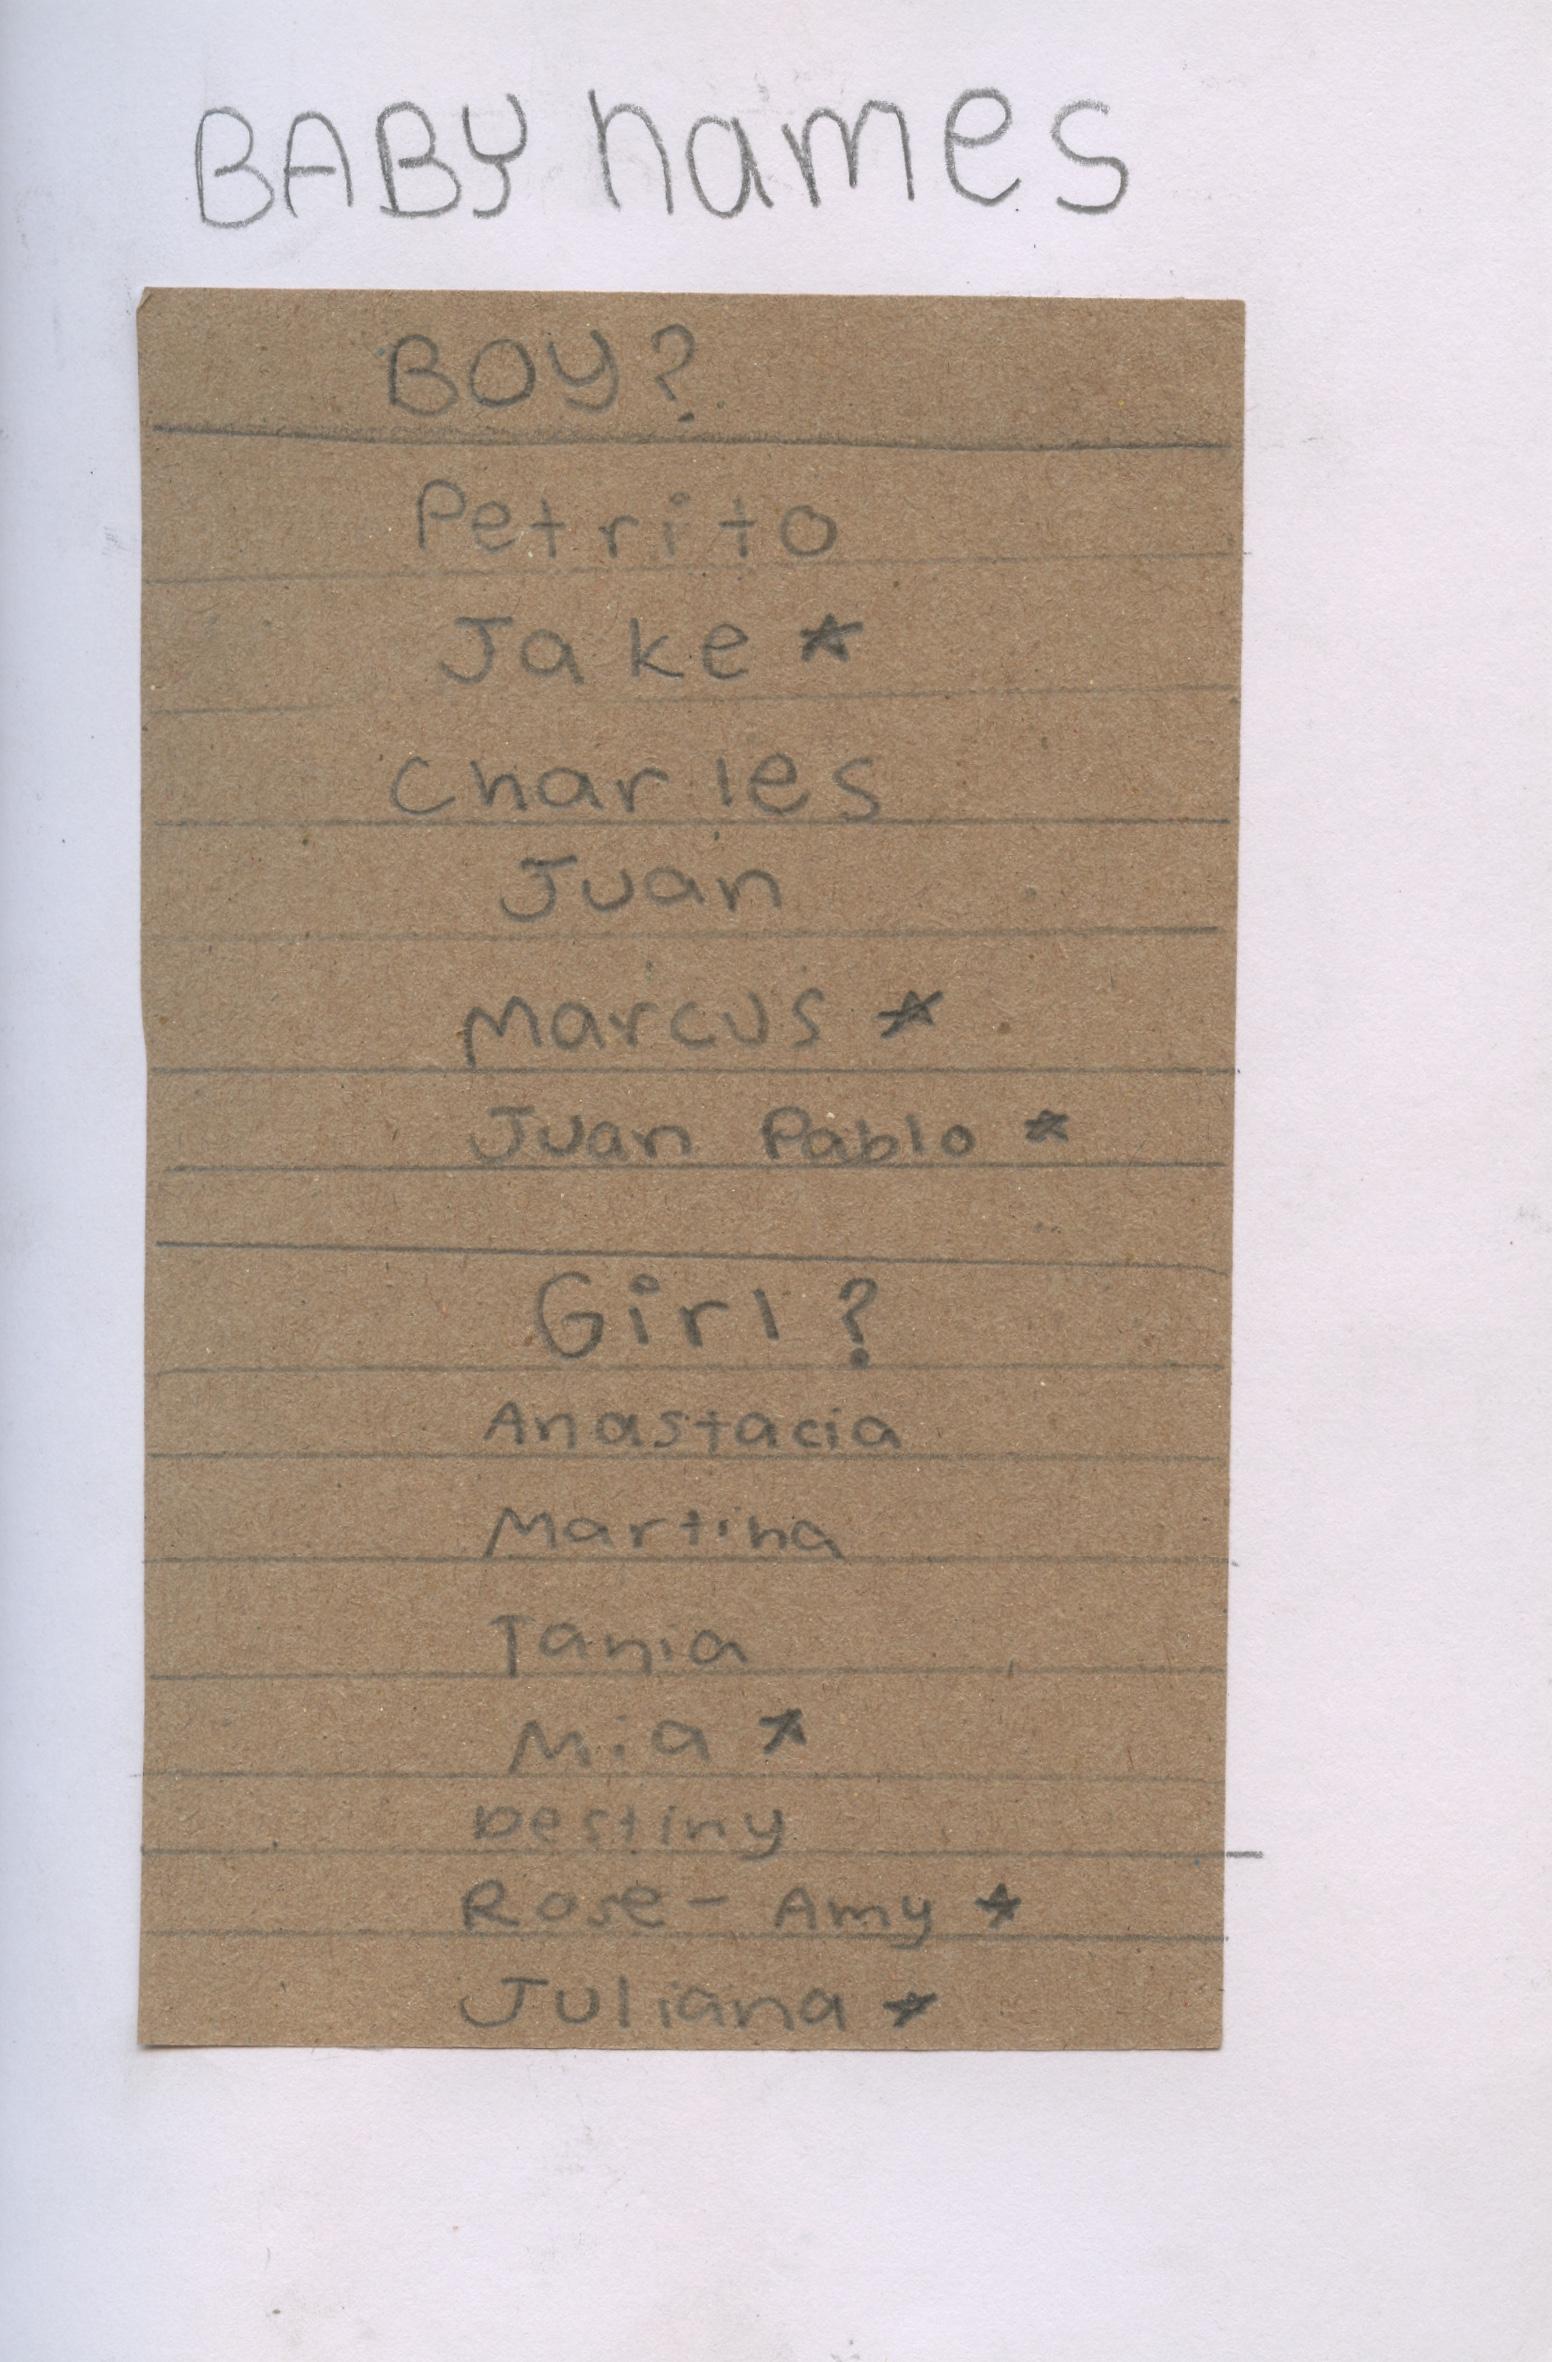 BABY names
BOY?
Petrito
Jake ★
Charles
Juan
Marcus ★
Juan Pablo ★
Girl?
Anastacia
Martina
Tania
Mia ★
Destiny
Rose- Amy ★
Juliana ★